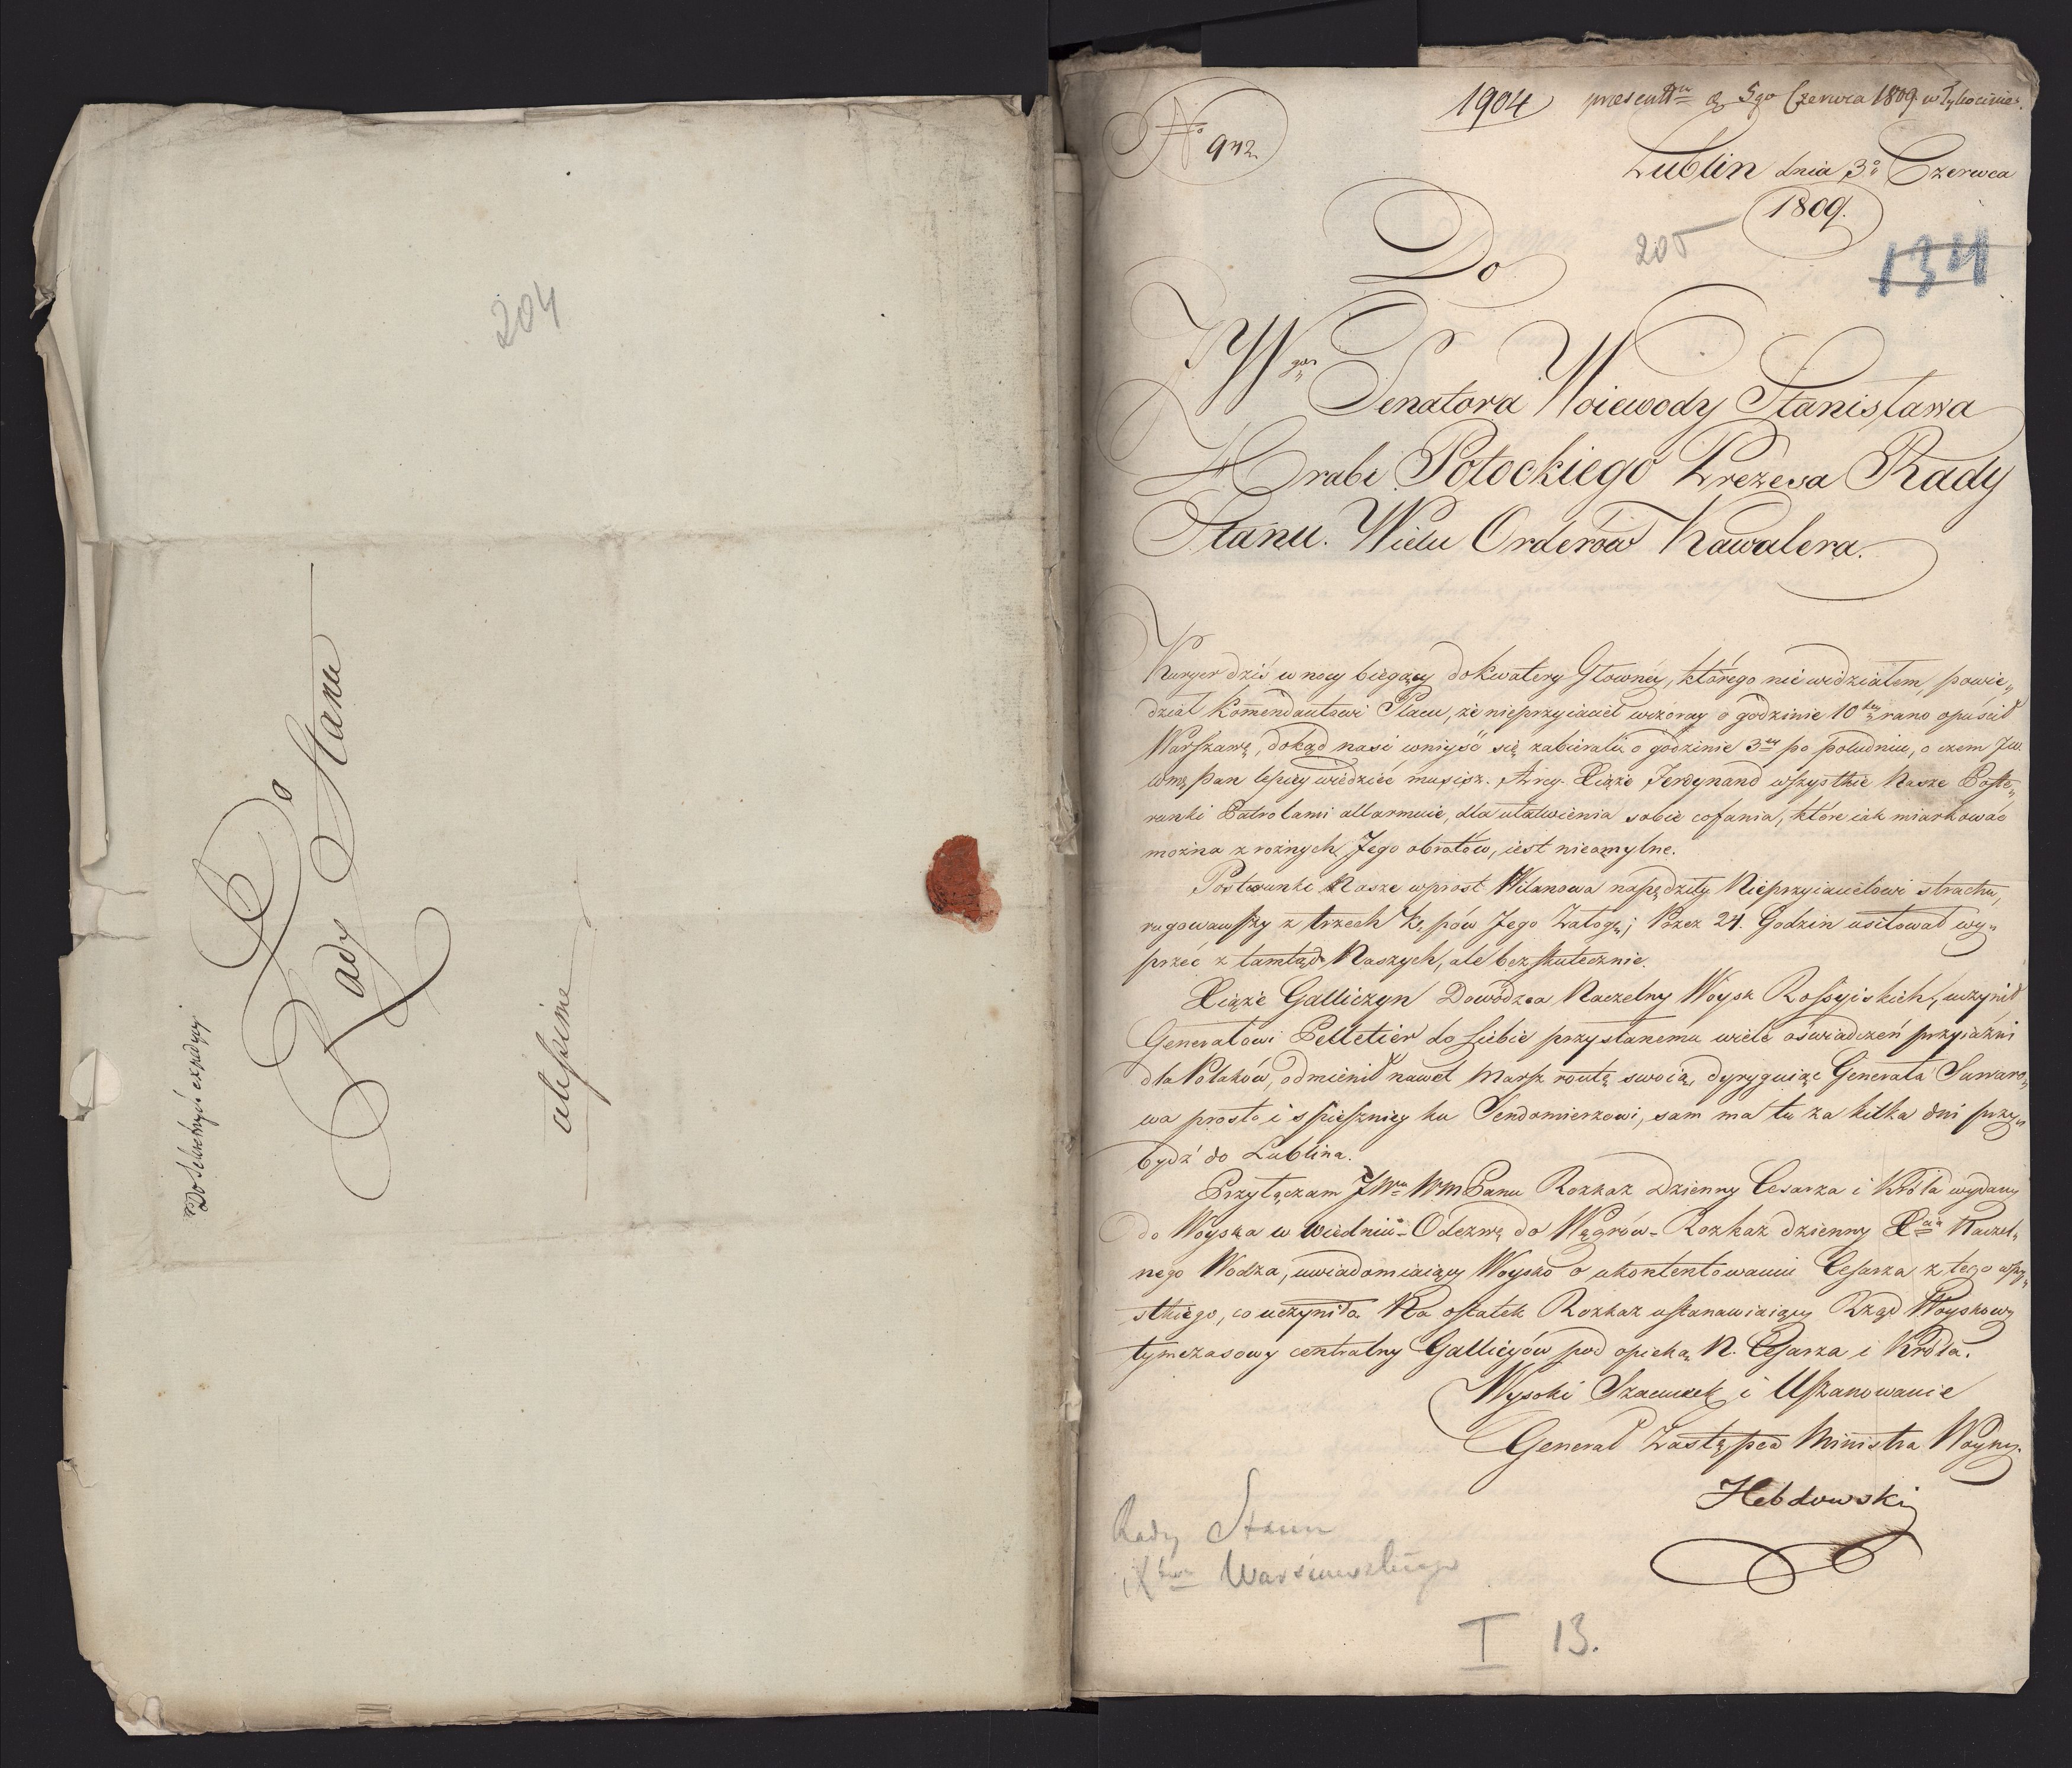 204
Do
Rady Stanu
Do Sekretnych expedycyi
1904
praesent d. 5go Czerwca 1809 w Tykocinie.
No 942.
Lublin dnia 3o Czerwca
1809.
205
134
Do
JWgo Senatora Woiewody Stanisława
Hrabi Potockiego Prezesa Rady
Stanu. Wielu Orderów Kawalera.
Kuryer dziś w nocy biegący do kwatery Głowney, którego nie widziałem, powie„
dział Kommendantowi Placu, że nieprzyiaciel wczoray o godzinie 10tey rano opuścił
Warszawę, dokąd nasi wniyść się zabierali o godzinie 3ey po południu, o czem JW.
WmPan lepiey wiedzieć musisz. Arcy-Xiąże Ferdynand wszystkie Nasze Poste„
runki Patrolami allarmuie, dla ułatwienia sobie cofania, które iak miarkować
można z rożnych Jego obrotów, iest nieomylne.
Posterunki Nasze wprost Wilanowa napędziły Nieprzyiacielowi strachu,
rugowawszy z trzech Kępów Jego Załogę; Przez 24. Godzin usiłował wy„
przeć z tamtąd Naszych, ale bezskutecznie.
Xiąże Galliczyn Dowódzca Naczelny Woysk Rossyiskich, uczynił
Generałowi Pelletier do siebie przysłanemu wiele oświadczeń przyiaźni
dla Polaków, odmienił nawet Marsz routę swoią, dyryguiąc Generała Suwaro„
wa prosto i spieszniey ku Sendomierzowi, sam ma tu za kilka dni przy„
bydź do Lublina.
Przyłączam JWu WMPanu Rozkaz Dzienny Cesarza i Króla wydany
do Woyska w Wiedniu - Odezwę do Węgrów - Rozkaz dzienny Xcia Naczel„
nego Wodza, uwiadomiaiący Woysko o ukontentowaniu Cesarza z tego wszy„
stkiego, co uczyniło. Na ostatek Rozkaz ustanawiaiący Rząd Woyskowy
tymczasowy centralny Gallicyów pod opieką N. Cesarza i Króla.
Wysoki Szacunek i Uszanowanie
Generał Zastępca Ministra Woyny.
Hebdowski
Rady Stanu
Xtwa Warszawskiego
I 13.